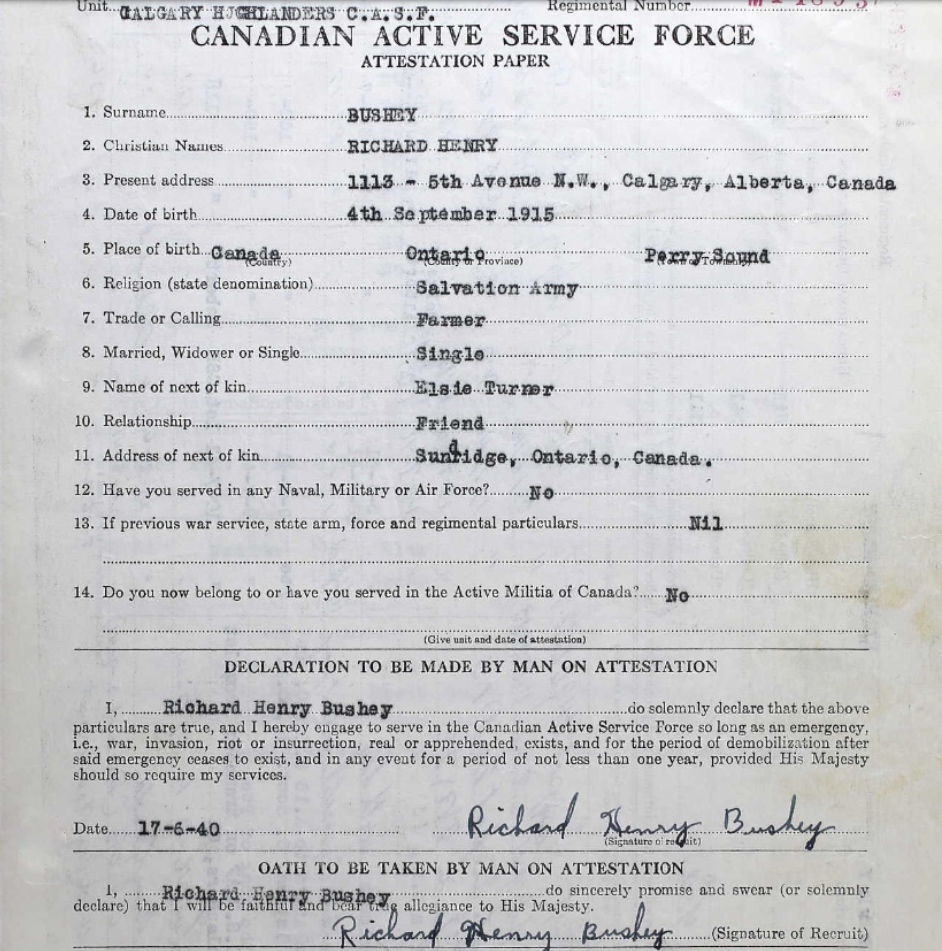 Unit CALGARY HIGHLANDERS C.A.S.F. Regimental Number
CANADIAN ACTIVE SERVICE FORCE
ATTESTATION PAPER
1. Surname BUSHEY
2. Christian Names RICHARD HENRY
3. Present address 1113 - 5th Avenue N.W., Calgary, Alberta, Canada
4. Date of birth 4th September 1915
5. Place of birth Canada Ontario Perry Sound
(Country) (County or Province) (Town or Township)
6. Religion (state denomination) Salvation Army
7. Trade or Calling Farmer
8. Married, Widower or Single Single
9. Name of next of kin Elsie Turner
10. Relationship Friend
11. Address of next of kin Sundridge, Ontario, Canada.
12. Have you served in any Naval, Military or Air Force? No
13. If previous war service, state arm, force and regimental particulars Nil
14. Do you now belong to or have you served in the Active Militia of Canada? No
(Give unit and date of attestation)
DECLARATION TO BE MADE BY MAN ON ATTESTATION
I, Richard Henry Bushey do solemnly declare that the above
particulars are true, and I hereby engage to serve in the Canadian Active Service Force so long as an emergency,
i.e., war, invasion, riot or insurrection, real or apprehended, exists, and for the period of demobilization after
said emergency ceases to exist, and in any event for a period of not less than one year, provided His Majesty
should so require my services.
Date 17-6-40 Richard Henry Bushey
(Signature of recruit)
OATH TO BE TAKEN BY MAN ON ATTESTATION
I, Richard Henry Bushey do sincerely promise and swear (or solemnly
declare) that I will be faithful and bear true allegiance to His Majesty.
Richard Henry Bushey (Signature of Recruit)